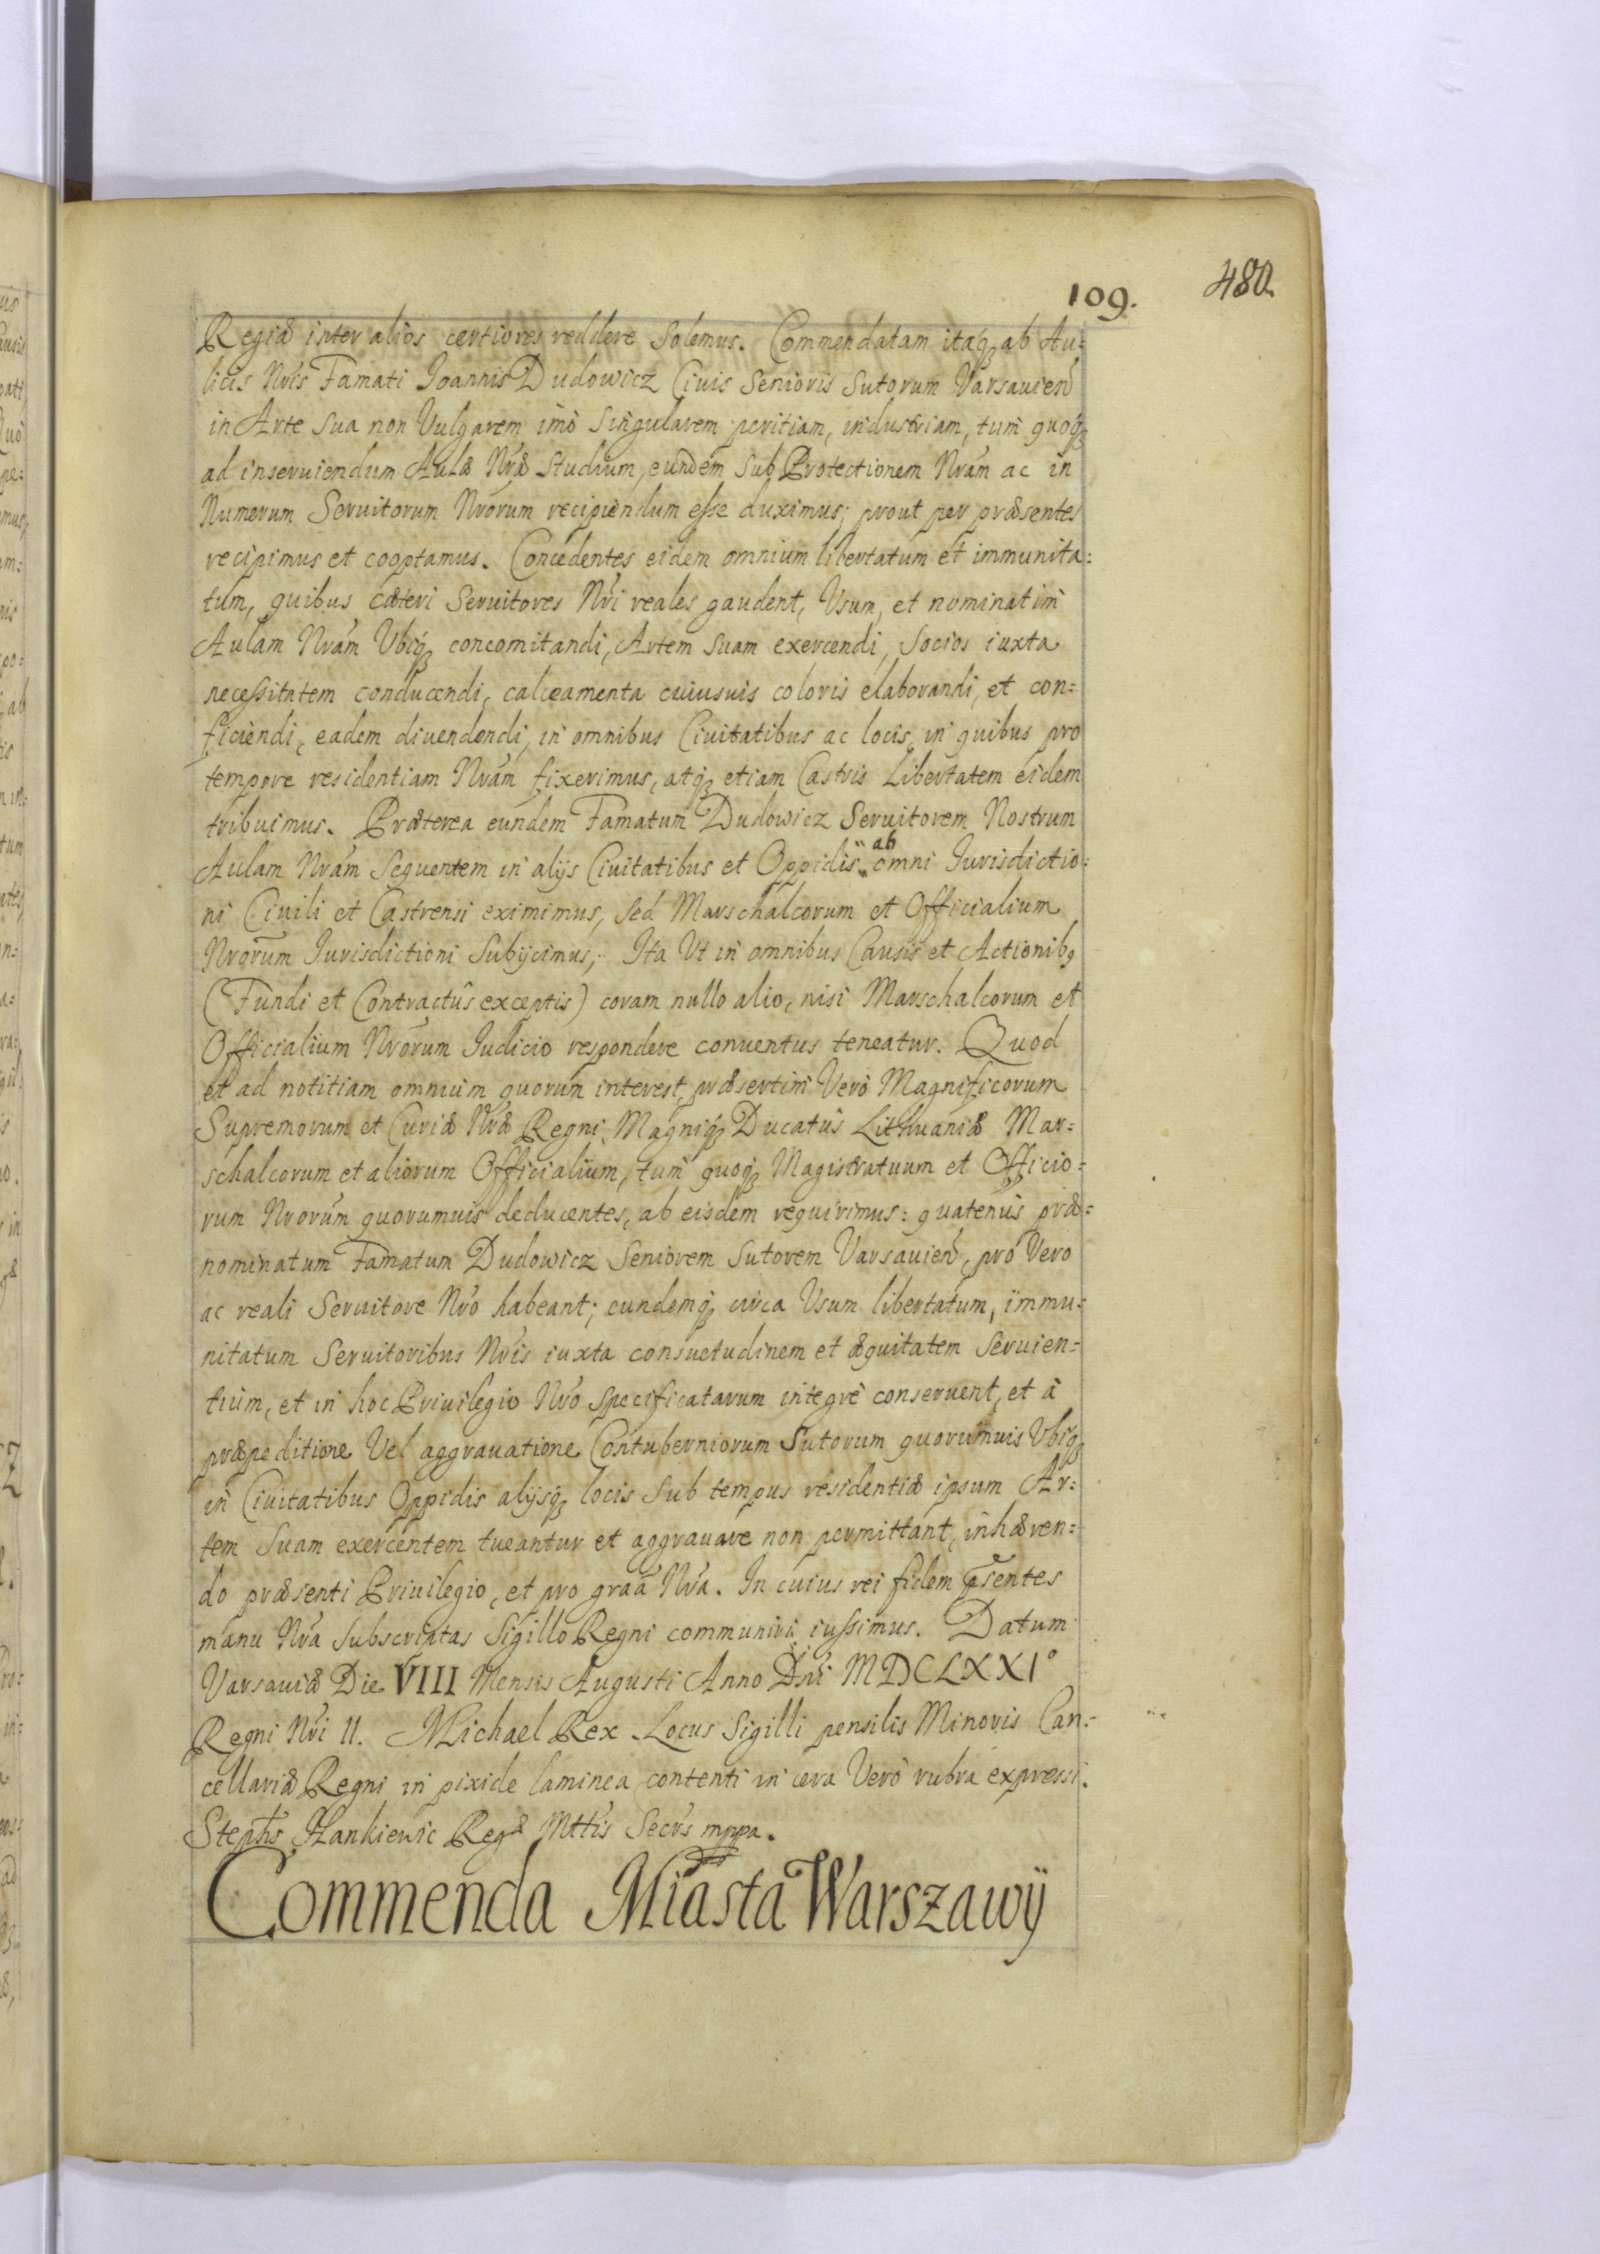 109.
480.
Regiæ inter alios certiores reddere solemus. Commendatam itaq₃ ab Au=
licis Nris Famati Joannis Dudowicz Civis Senioris Sutorum Varsavien̄
in Arte sua non Vulgarem imò singularem peritiam, industriam, tum quoq₃
ad inserviendum Aulæ Nræ studium, eundem sub Protectionem Nram ac in
Numerum Servitorum Nrorum recipiendum esse duximus; prout per præsentes
recipimus et cooptamus. Concedentes eidem omnium libertatum et immunita=
tum, quibus cæteri Servitores Nri reales gaudent, Usum, et nominatim
Aulam Nram Ubiq₃ concomitandi, Artem suam exercendi, socios iuxta
necessitatem conducendi, calceamenta cuiusuis coloris elaborandi, et con=
ficiendi, eadem diuendendi, in omnibus Ciuitatibus ac locis, in quibus pro
tempore residentiam Nram fixerimus, atq₃ etiam Castris Libertatem eidem
tribuimus. Præterea eundem Famatum Dudowicz Seruitorem Nostrum
Aulam Nram sequentem in alijs Ciuitatibus et Oppidis ab omni Jurisdictio=
ni Ciuili et Castrensi eximimus, sed Marschalcorum et Officialium
Nrorum Jurisdictioni subijcimus, Ita Ut in omnibus Causis et Actionib₉
(Fundi et Contractûs exceptis) coram nullo alio, nisi Marschalcorum et
Officialium Nrorum Judicio respondere conuentus teneatur. Quod
et ad notitiam omnium quorum interest, præsertim Verò Magnificorum
Supremorum et Curiæ Nræ Regni, Magniq₃ Ducatûs Lithuaniæ Mar=
schalcorum et aliorum Officialium, tum quoq₃ Magistratuum et Officio=
rum Nrorum quorumuis deducentes, ab eisdem requirimus: quatenùs præ=
nominatum Famatum Dudowicz Seniorem Sutorem Varsauien̄, pro Vero
ac reali Seruitore Nro habeant; eundemq₃ circa Usum libertatum, immu=
nitatum Seruitoribus Nris iuxta consuetudinem et æquitatem seruien=
tium, et in hoc Priuilegio Nro specificatarum integrè conseruent, et à
præpeditione Vel aggrauatione Contuberniorum Sutorum quorumuis Ubiq₃
in Ciuitatibus Oppidis alijsq₃ locis sub tempus residentiæ ipsum Ar=
tem suam exercentem tueantur et aggrauare non permittant, inhæren=
do præsenti Priuilegio, et pro graâ Nra. In cuius rei fidem p̃sentes
manu Nra subscriptas Sigillo Regni communiri iussimus. Datum
Varsauiæ Die VIII Mensis Augusti Anno Dni MDCLXXI°
Regni Nri II. Michael Rex. Locus Sigilli pensilis Minoris Can=
cellariæ Regni in pixide laminea contenti in cera Verò rubra expressi.
Stephs Hankiewic Regæ Mttis Secrs mppa.
Commenda Miasta Warszawÿ